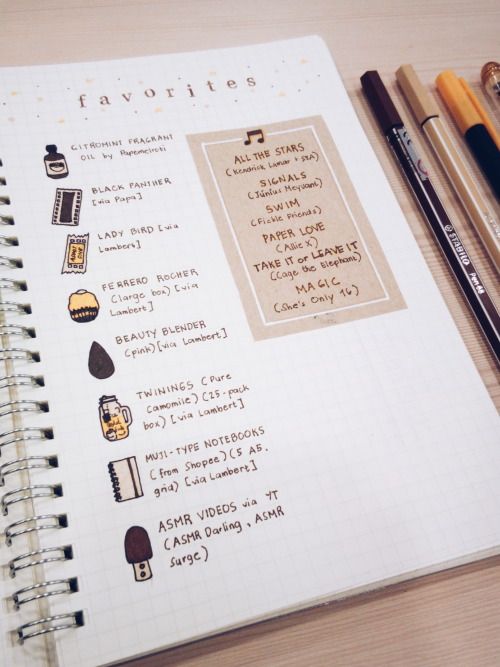 favorites
CITROMINI FRAGRANT
OIL by Papemelroti
BLACK PANTHER
[via Papa]
LADY BIRD [via
Lambert]
FERRERO ROCHER
(large box) [via
Lambert]
BEAUTY BLENDER
(pink) [via Lambert]
TWININGS (Pure
Camomile) (25-pack
box) [via Lambert]
MUJI-TYPE NOTEBOOKS
(from Shopee) (5 A5.
grid) [via Lambert]
ASMR VIDEOS via YT
(ASMR Darling, ASMR
Surge)
ALL THE STARS
(Kendrick Lamar + SZA)
SIGNALS
(Junius Meyvant)
SWIM
(Fickle Friends)
PAPER LOVE
(Allie X)
TAKE IT or LEAVE IT
(Cage the Elephant)
MAGIC
(She's Only 16)
ADMIT
ONE
STABILO Pen 68